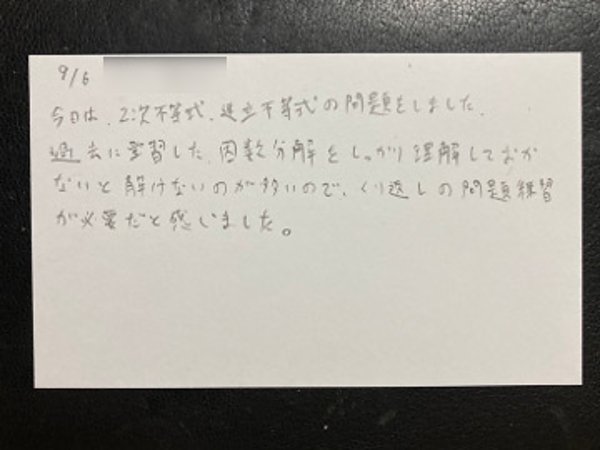 9/6
今日は、2次不等式、連立不等式の問題をしました。
過去に学習した、因数分解をしっかり理解しておか
ないと解けないのが多いので、くり返しの問題練習
が必要だと感じました。